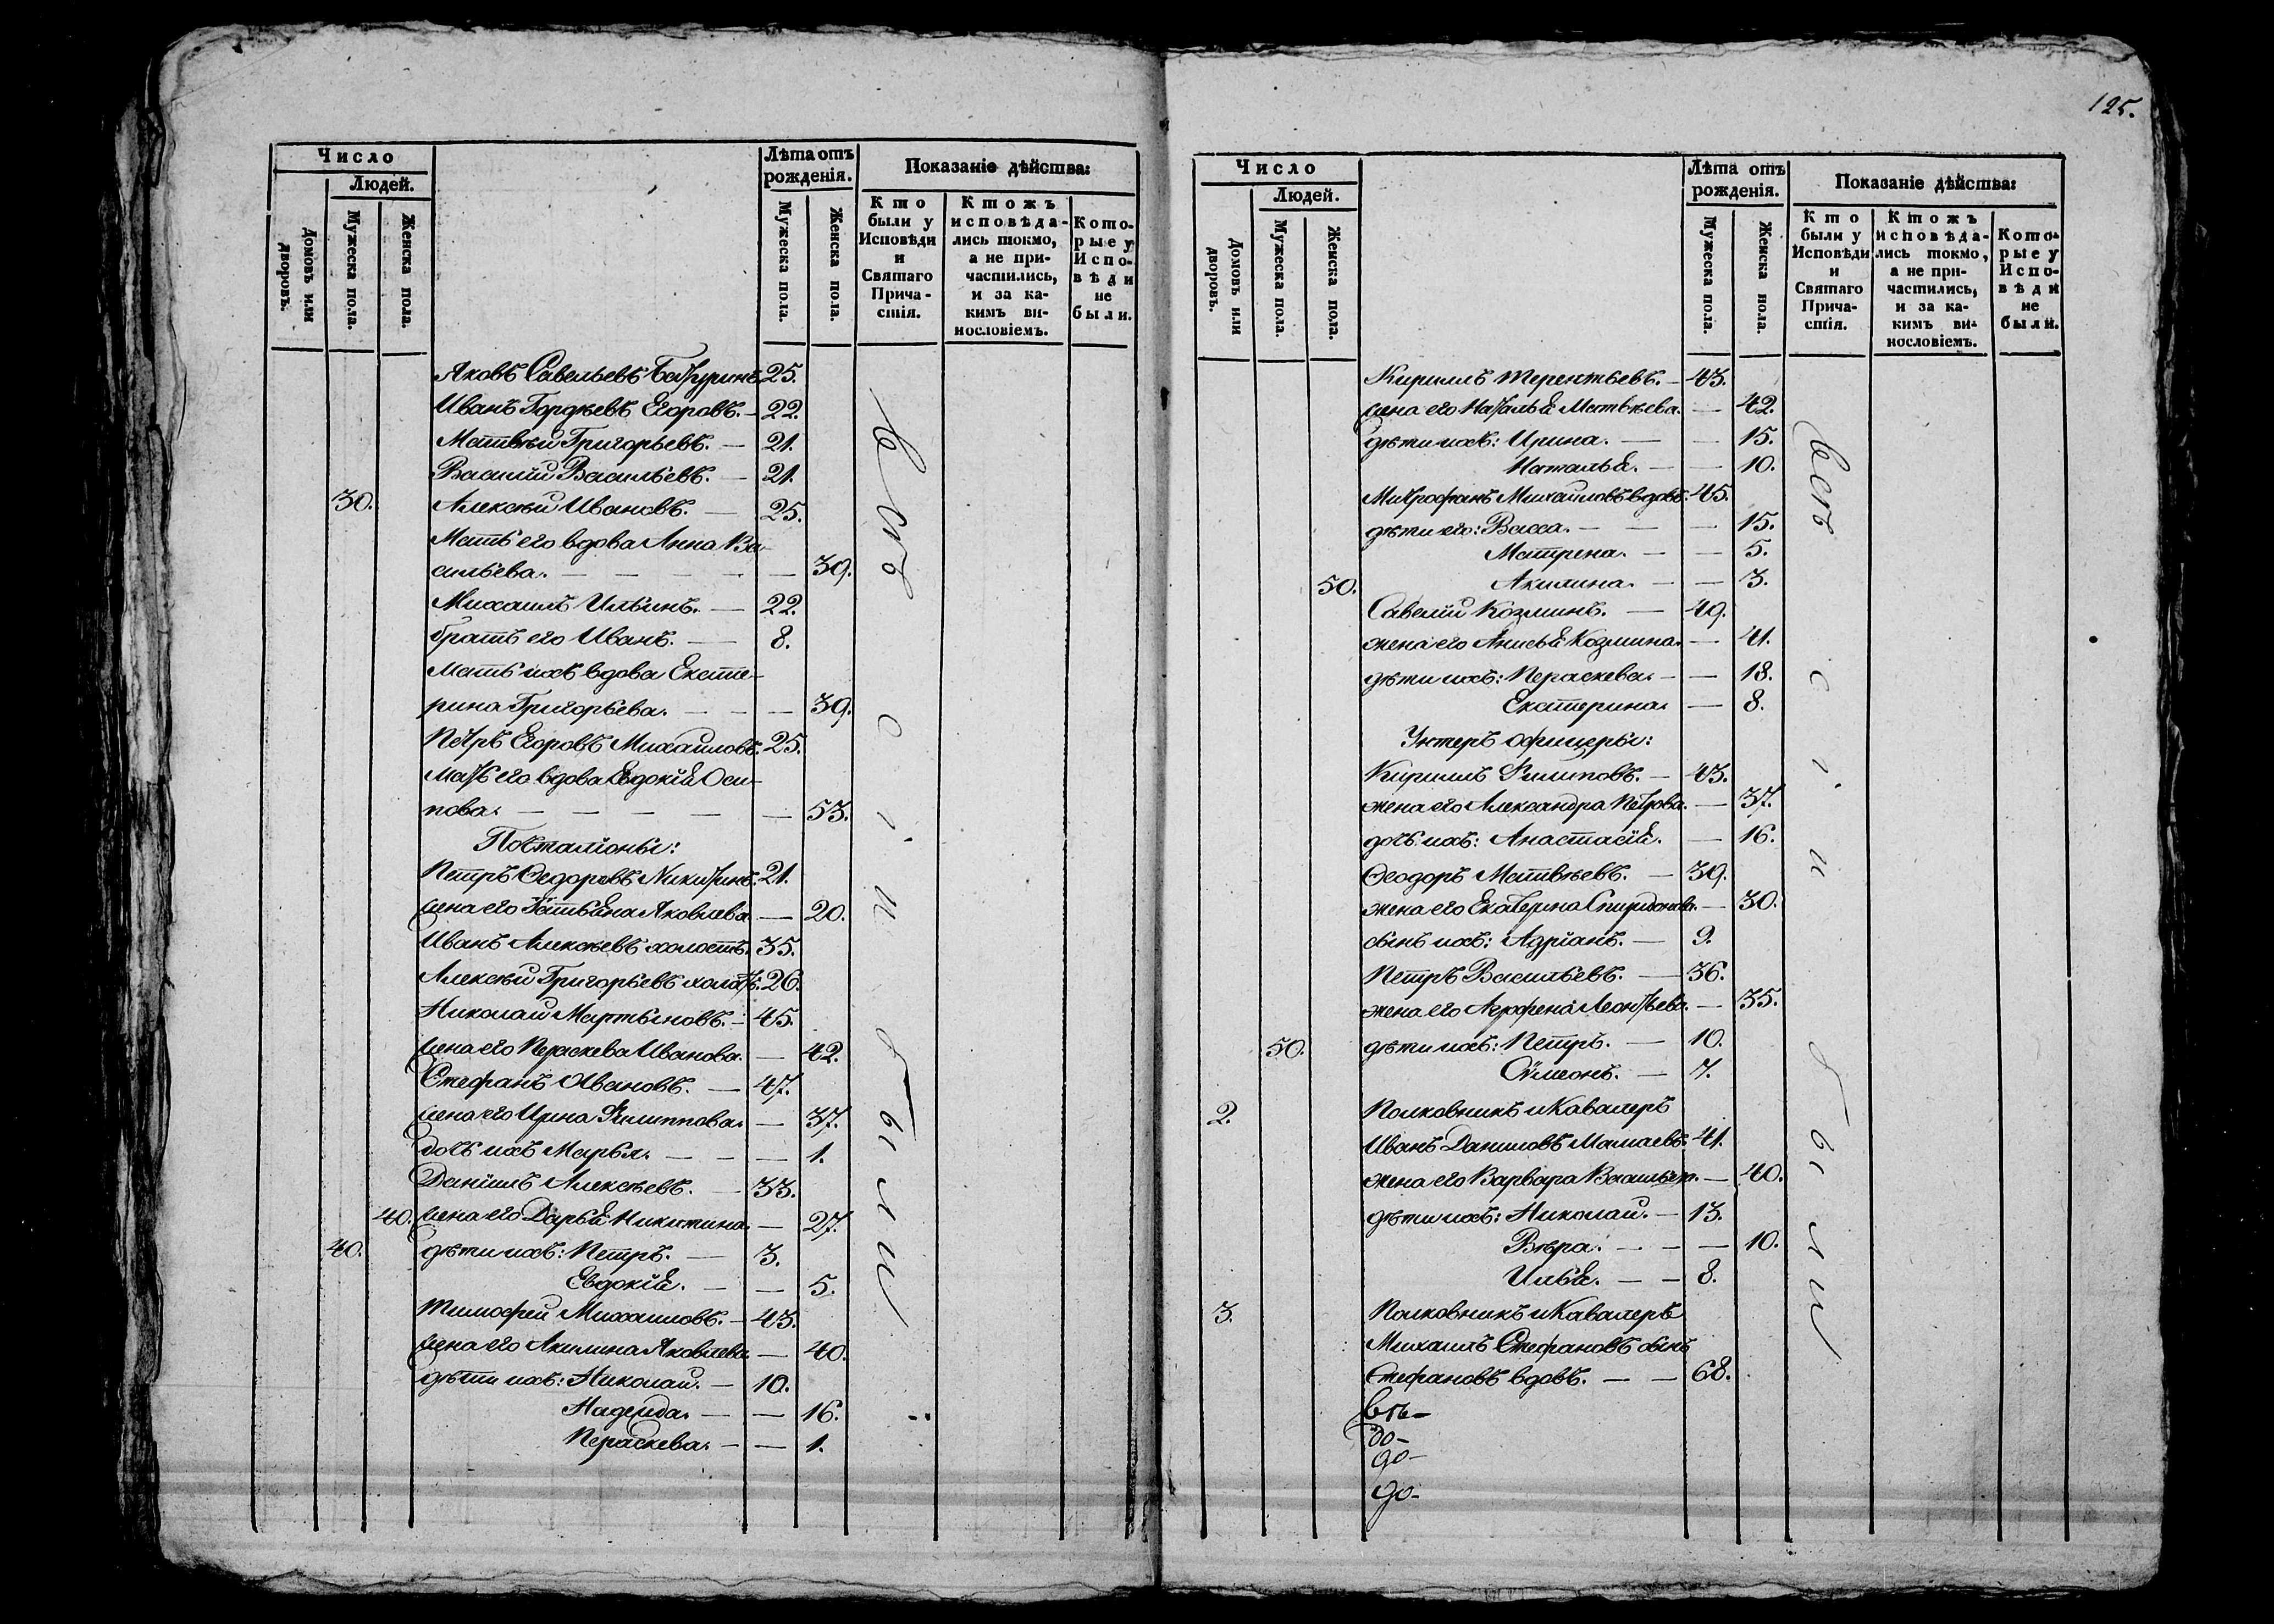 Число
Людей.
Домовъ или дворовъ.
Мужеска пола.
Женска пола.
Лѣта отъ рожденія.
Мужеска пола.
Женска пола.
Показаніе дѣйства:
Кто были у Исповѣди и Святаго Прича-стія.
Ктожъ исповѣда-лись токмо, а не при-частились, и за ка-кимъ ви-нословіемъ.
Кото-рые у Испо-вѣди не были.
Яковъ Савельевъ Батуринъ 25.
Иванъ Гордѣевъ Егоровъ. — 22.
Матвѣй Григорьевъ. — 21.
Василій Васильевъ. — 21.
30. Алексѣй Ивановъ. — 25.
Мать его вдова Анна Ва-
сильева. — — — — — 39.
Михаилъ Ильинъ. — 22.
братъ его Иванъ. — 8.
Мать ихъ вдова Екате-
рина Григорьева. — — — 39.
Петръ Егоровъ Михайловъ. 25.
Мать его вдова Евдокія Оси-
пова. — — — — — 53.
Почталіоны:
Петръ Ѳедоровъ Никитинъ. 21.
жена его Татьяна Яковлева — 20.
Иванъ Алексѣевъ холостъ. 35.
Алексѣй Григорьевъ холостъ. 26.
Николай Мартыновъ. — 45.
жена его Параскева Иванова. — 42.
Стефанъ Ивановъ. — 47.
жена его Ирина Филиппова. — 37.
дочь ихъ Марья. — — — 1.
Даніилъ Алексѣевъ. — 33.
40. жена его Дарья Никитина. — 27.
40. дѣти ихъ: Петръ. — 3.
Евдокія. — — 5.
Тимофей Михайловъ. — 43.
жена его Акилина Яковлева — 40.
дѣти ихъ: Николай. — 10.
Надежда. — — 16.
Параскева. — — 1.
Всѣ
с і и
были
125.
Число
Людей.
Домовъ или дворовъ.
Мужеска пола.
Женска пола.
Лѣта отъ рожденія.
Мужеска пола.
Женска пола.
Показаніе дѣйства:
Кто были у Исповѣди и Святаго Прича-стія.
Ктожъ исповѣда-лись токмо, а не при-частились, и за ка-кимъ ви-нословіемъ.
Кото-рые у Испо-вѣди не были.
Кириллъ Терентьевъ. — 43.
жена его Наталья Матвѣева. — 42.
дѣти ихъ: Ирина. — — 15.
Наталья. — — 10.
Митрофанъ Михайловъ вдовъ. 45.
дѣти его: Васса. — — — 15.
Матрена. — — 5.
50. Акилина. — — 3.
Савелій Козминъ. — 49.
жена его Анисья Козмина. — 41.
дѣти ихъ: Параскева. — — 18.
Екатерина. — 8.
Унтеръ офицеры:
Кириллъ Филиповъ. — 43.
жена его Александра Петрова. — 37.
дочь ихъ: Анастасія. — 16.
Ѳеодоръ Матвѣевъ. — 39.
жена его Екатерина Спиридонова. — 30.
сынъ ихъ: Адріанъ. — 9.
Петръ Васильевъ. — 36.
жена его Агрофена Леонтьева. — 35.
50. дѣти ихъ: Петръ. — 10.
Сѵмеонъ. — 7.
2. Полковникъ и Кавалеръ
Иванъ Даниловъ Мамаевъ. 41.
жена его Варвара Васильева. — 40.
дѣти ихъ: Николай. — 13.
Вѣра. — — — 10.
Илья. — — 8.
3. Полковникъ и Кавалеръ
Михаилъ Стефановъ сынъ
Стефановъ вдовъ. — — 68.
до-
до-
до-
Всѣ
с і и
были